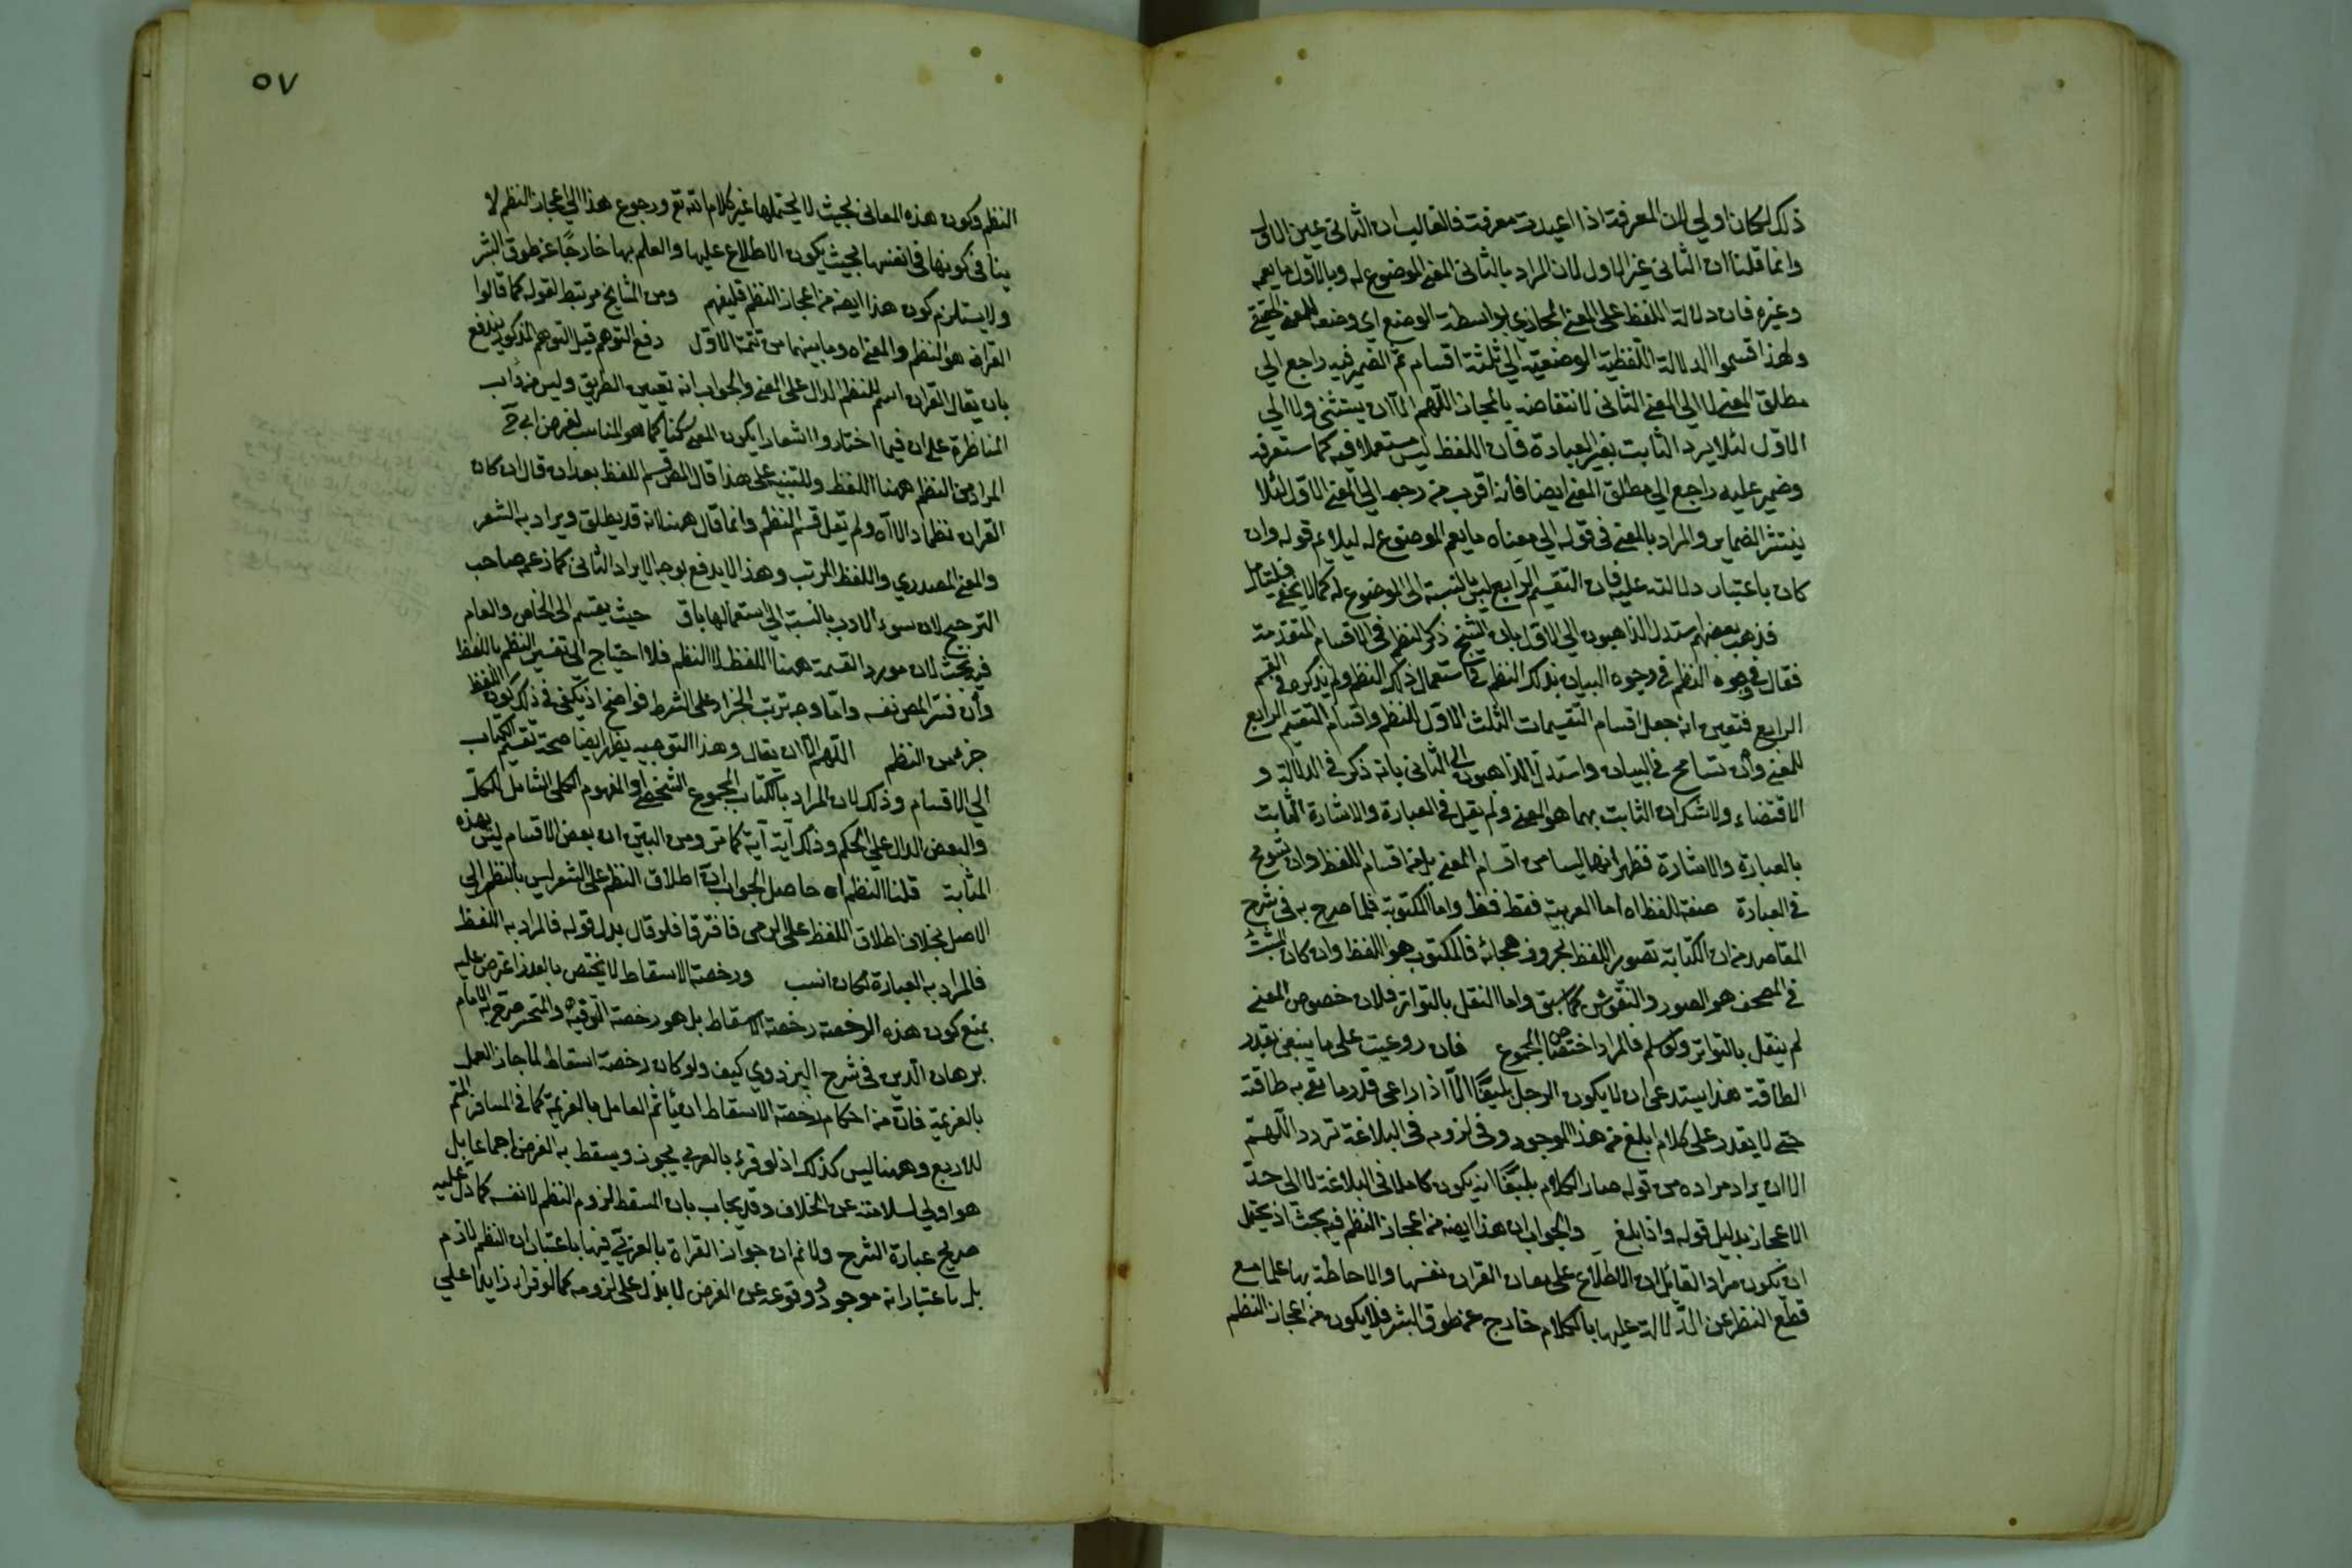 ذلك لكان اولي لان المعرفة اذا اعيدت معرفة فالغالب ان الثاني عين الاول
وانما قلنا ان الثاني غير الاول لان المراد بالثاني المعنى الموضوع له وبالاول ما يعمه
وغيره فان دلالة اللفظ على المعنى المجازي بواسطة الوضع اي وضعه للمعنى الحقيقي
ولهذا قسموا الدلالة اللفظية الوضعية الي ثلثة اقسام ثم الضمير فيه راجع الي
مطلق المعنى لا الي المعنى الثاني لانتقاضه بالمجاز اللهم الا ان يستثنى ولا الي
الاول لئلا يرد الثابت بغير العبادة فان اللفظ ليس مستعملا فيه كما ستعرفه
وضمير عليه راجع الي مطلق المعنى ايضا فانه اقرب من رجعه الي المعنى الاول لئلا
ينتثر الضماير والمراد بالمعنى في قوله الي معناه ما يعم الموضوع له ليلايم قوله وان
كان باعتبار دلالته عليه فان التقسيم الرابع ليس بالنسبة الى الموضوع له كما لا يخفى فليتامل
فذهب بعضهم استدل الذاهبون الي الاول بان الشيخ ذكر النظم في الاقسام المتقدمة
فقال في وجوه النظم في وجوه البيان بذلك النظم في استعمال ذلك النظم ولم يذكره في القسم
الرابع فتعين انه جعل اقسام التقسيمات الثلث الاول للنظم واقسام التقسيم الرابع
للمعنى وان تسامح في البيان واستدل الذاهبون الى الثاني بانه ذكر في الدلالة و
الاقتضاء ولا شك ان الثابت بهما هو المعنى ولم يقل في العبارة والاشارة الثابت
بالعبارة والاشارة فظهر انهما ليسا من اقسام المعنى بل من اقسام اللفظ وان تسومح
في العبارة صفة اللفظ اه اما العربية فقط فظ واما المكتوبة فلما صرح به في شرح
المقاصد من ان الكتابة تصوير اللفظ بحروف هجائه فالمكتوب هو اللفظ وان كان المثبت
في المصحف هو الصور والنقوش كما سبق واما النقل بالتواتر فلان خصوص المعنى
لم ينقل بالتواتر ولو سلم فالمراد اختصاص المجموع فان روعيت على ما ينبغي بقدر
الطاقة هذا يستدعي ان لا يكون الرجل بليغا الا اذا راعى قدر ما تفي به طاقته
حتى لا يقدر على كلام ابلغ من هذا الموجود وفي لزومه في البلاغة تردد اللهم
الا ان يراد مراده من قوله صار الكلام بليغا انه يكون كاملا في البلاغة لا الى حد
الاعجاز بدليل قوله واذا بلغ والجواب ان هذا ايضه من اعجاز النظم فيه بحث اذ يحتمل
ان يكون مراد القايل ان الاطلاع على معان القران نفسها والاحاطة بها علما مع
قطع النظر عن الدلالة عليها بالكلام خارج عن طوق البشر فلا يكون من اعجاز النظم
٥٧
النظم وكون هذه المعاني بحيث لا يحتملها غير كلام الله تع ورجوع هذا الي اعجاز النظم لا
ينافي كونها في انفسها بحيث يكون الاطلاع عليها والعلم بها خارجا عن طوق البشر
ولا يستلزم كون هذا ايضه من اعجاز النظم فليفهم ومن المشايخ مرتبط لقوله كما قالوا
القران هو النظم والمعنى اه وما بينهما من تتمة الاول دفع التوهم قيل التوهم المذكور يندفع
بان يقال القران اسم للنظم الدال على المعنى والجواب انه تعيين الطريق وليس من داب
المناظرة على ان فيما اختاروا اشعارا بكون المعنى ركنا كما هو المناسب لغرض ابي ح
المراد من النظم ههنا اللفظ وللتنبيه على هذا قال المص قسم اللفظ بعد ان قال ان كان
القران نظما دالا اه ولم يقل قسم النظم وانما قال ههنا لانه قد يطلق ويراد به الشعر
والمعنى المصدري واللفظ المرتب وهذا لا يدفع بوجه الايراد الثاني كما زعمه صاحب
الترجيح لان سوء الادب بالنسبة الي استعمالها باق حيث يقسم الى الخاص والعام
فيه بحث لان مورد القسمة ههنا اللفظ لا النظم فلا احتياج الي تفسير النظم باللفظ
وان فسر المص نفسه واما وجه ترتب الجزاء على الشرط فواضح اذ يكفي في ذلك كون اللفظ
جزء من النظم اللهم الا ان يقال وهذا التوجيه يظهر ايضا صحة تقسيم الكتاب
الي الاقسام وذلك لان المراد بالكتاب المجموع الشخصي او المفهوم الكلي الشامل للكل
والبعض الدال على الحكم وذلك آية آية كما مر ومن البين ان بعض الاقسام ليس بهذه
المثابة قلنا النظم اه حاصل الجواب ان اطلاق النظم على الشعر ليس بالنظر الى
الاصل بخلاف اطلاق اللفظ على الرمى فافترقا فلو قال بدل قوله فالمراد به اللفظ
فالمراد به العبارة لكان انسب ورخصة الاسقاط لا يختص بالعذر اعترض عليه
بمنع كون هذه الرخصة رخصة الاسقاط بل هو رخصة الترفيه والتخيير صرح به الامام
برهان الدين في شرح البزدوي كيف ولو كان رخصة اسقاط لما جاز العمل
بالعزيمة فان من احكام رخصة الاسقاط ان ياثم العامل بالعزيمة كما في المسافر المتم
للاربع وههنا ليس كذلك اذ لو قرء بالعربي يجوز ويسقط به الفرض اجماعا بل
هو اولي لسلامته عن الخلاف وقد يجاب بان المسقط لزوم النظم لا نفسه كما دل عليه
صريح عبارة الشرح ولانم ان جواز القراة بالعربي فيها باعتبار ان النظم لازم
بل باعتبار انه موجود ووقوعه عن الفرض لا يدل على لزومه كما لو قرا زايدا على